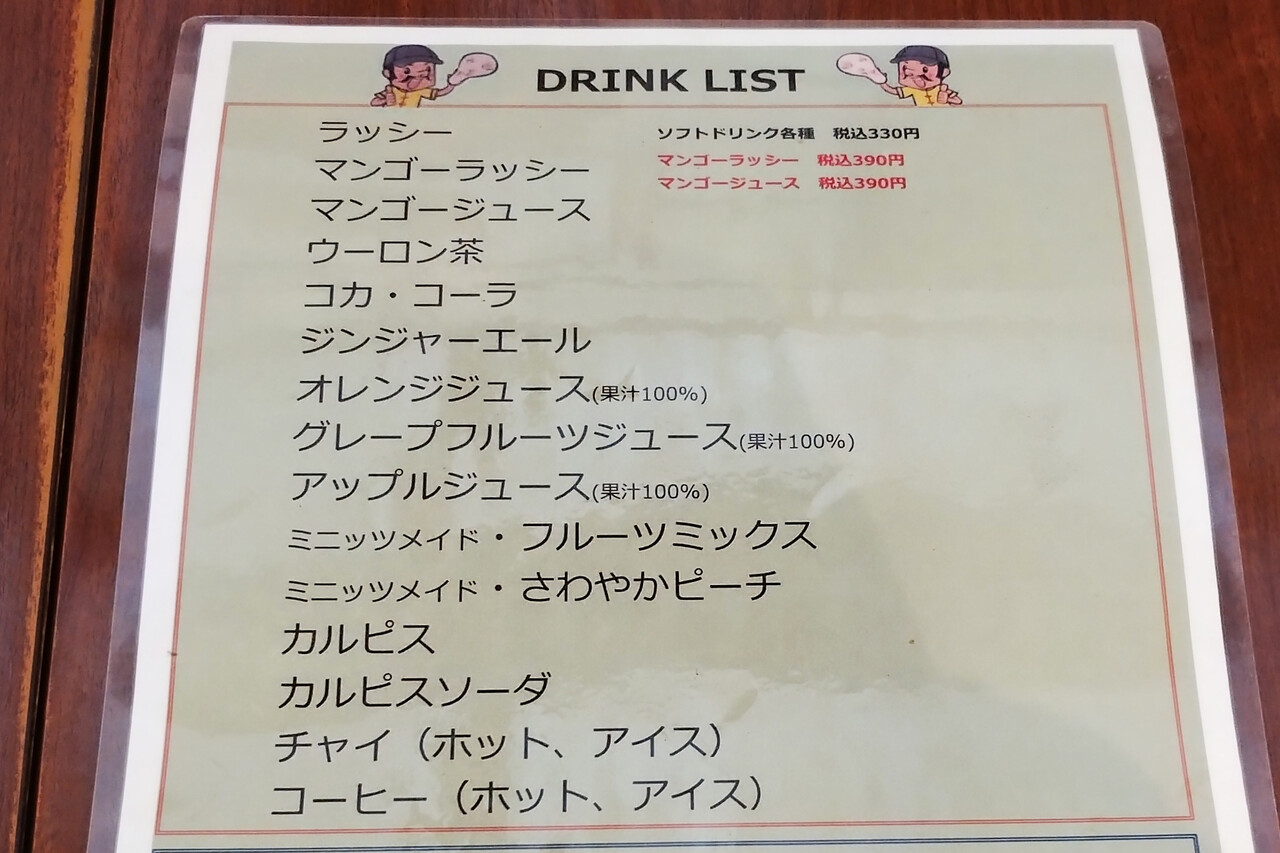 DRINK LIST
ラッシー
ソフトドリンク各種 税込330円
マンゴーラッシー
マンゴーラッシー 税込390円
マンゴージュース 税込390円
マンゴージュース
ウーロン茶
コカ・コーラ
ジンジャーエール
オレンジジュース(果汁100%)
グレープフルーツジュース(果汁100%)
アップルジュース(果汁100%)
ミニッツメイド・フルーツミックス
ミニッツメイド・さわやかピーチ
カルピス
カルピスソーダ
チャイ（ホット、アイス）
コーヒー（ホット、アイス）